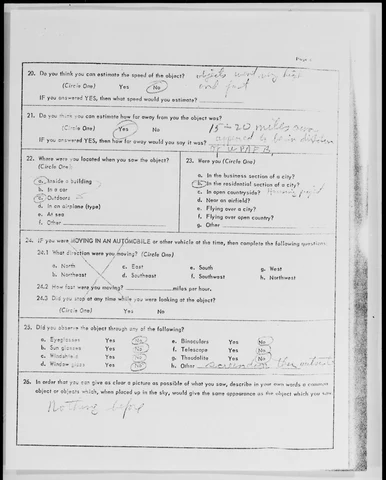 Page
20. Do you think you can estimate the speed of the object? objects were very high
(Circle One) Yes No and fast
IF you answered YES, then what speed would you estimate?
21. Do you think you can estimate how far away from you the object was?
(Circle One) Yes No 15-20 miles
IF you answered YES, then how far away would you say it was? appeared to be in direction
OF WPAFB
22. Where were you located when you saw the object?
(Circle One)
a. Inside a building
b. In a car
c. Outdoors
d. In an airplane (type)
e. At sea
f. Other
23. Were you (Circle One)
a. In the business section of a city?
b. In the residential section of a city?
c. In open countryside?
d. Near an airfield?
e. Flying over a city?
f. Flying over open country?
g. Other
24. IF you were MOVING IN AN AUTOMOBILE or other vehicle at the time, then complete the following questions
24.1 What direction were you moving? (Circle One)
a. North c. East e. South g. West
b. Northeast d. Southeast f. Southwest h. Northwest
24.2 How fast were you moving? miles per hour.
24.3 Did you stop at any time while you were looking at the object?
(Circle One) Yes No
25. Did you observe the object through any of the following?
a. Eyeglasses Yes No e. Binoculars Yes No
b. Sun glasses Yes No f. Telescope Yes No
c. Windshield Yes No g. Theodolite Yes No
d. Window glass Yes No h. Other
26. In order that you can give as clear a picture as possible of what you saw, describe in your own words a common
object or objects which, when placed up in the sky, would give the same appearance as the object which you saw.
Nothing before